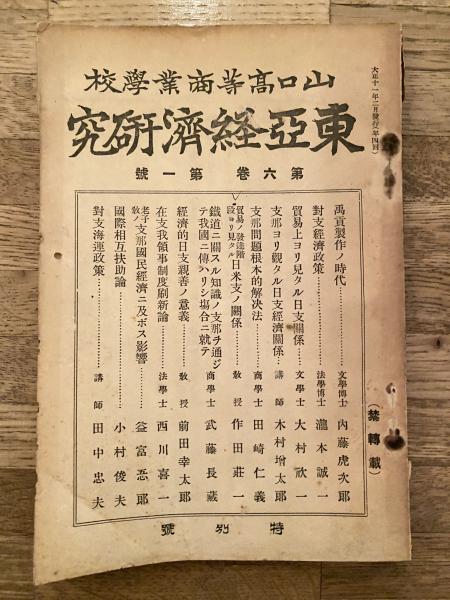 大正十一年二月發行(年四回)
山口高等商業學校
東亞經濟研究
第六卷 第一號
禹貢製作ノ時代…………文學博士 內藤虎次郎
對支經濟政策…………法學博士 瀧本誠一
貿易上ヨリ見タル日支關係…………文學士 大村欣一
支那ヨリ觀タル日支經濟關係…………講師 木村增太郎
支那問題根本的解决法…………商學士 田崎仁義
貿易ノ發達階段ヨリ見タル日米支ノ關係…………教授 作田莊一
鐵道ニ關スル知識ノ支那ヲ通ジテ我國ニ傳ハリシ塲合ニ就テ 商學士 武藤長藏
經濟的日支親善ノ意義…………教授 前田幸太郎
在支我領事制度刷新論…………法學士 西川喜一
老子教ノ支那國民經濟ニ及ボス影響…………益富吾郎
國際相互扶助論…………小村俊夫
對支海運政策…………講師 田中忠夫
(禁轉載)
特別號